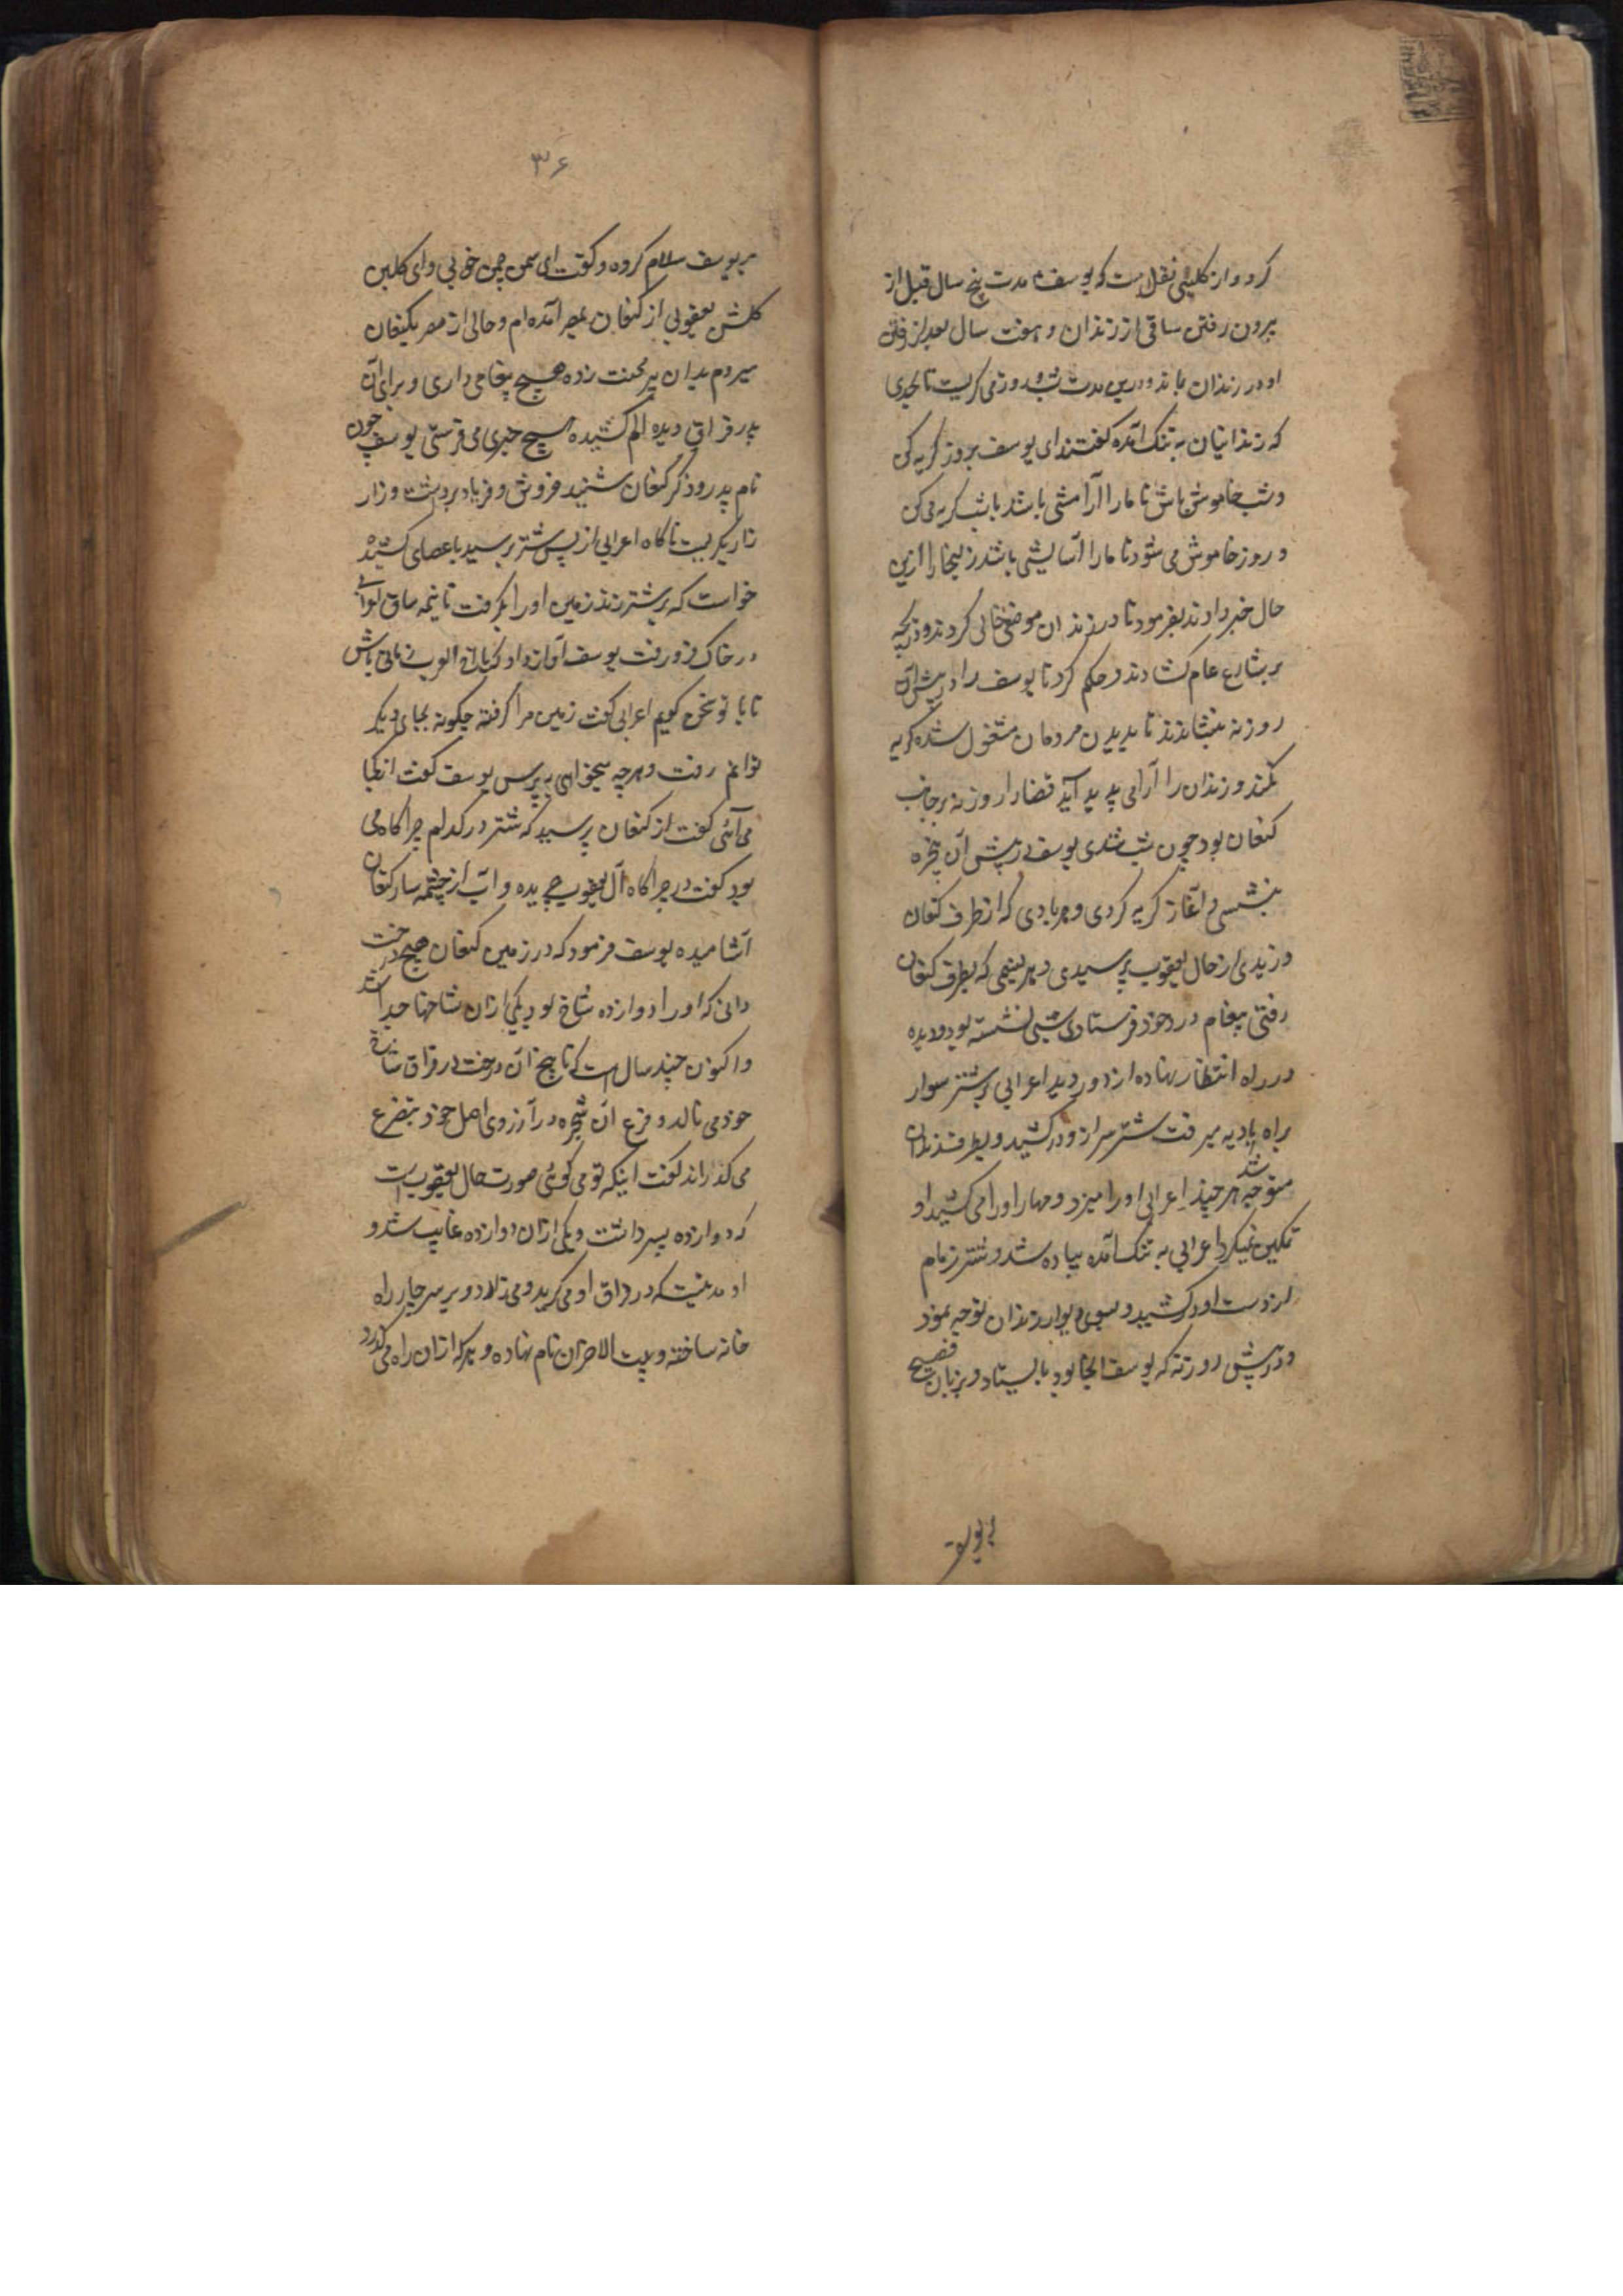 کرد و از کلبی نقل است که یوسف مدت پنج سال قبل از
بیرون رفتن ساقی از زندان و هفت سال بعد از رفتن
او در زندان بماند و درین مدت شب و روز می گریست تا بحدی
که زندانیان به تنک آمده گفتند ای یوسف بروز گریه کن
و شب خاموش باش تا ما را آرامشی باشد یا شب گریه می کن
و روز خاموش می شو تا ما را آسایشی باشد زلیخا را ازین
حال خبر دادند بفرمود تا در زندان موضعی خالی کردند و دریچه
بر شارع عام کشادند و حکم کرد تا یوسف را در پیش آن
روزنه بنشانند تا بدیدن مردمان مشغول شده گریه
نکند و زندان را آرامی پدید آید قضا را روزنه بر جانب
کنعان بود چون شب شدی یوسف در پیش آن پنجره
بنشستی و آغاز گریه کردی و هر بادی که از طرف کنعان
وزیدی از حال یعقوب پرسیدی و هر نسیمی که بطرف کنعان
رفتی پیغام درد خود فرستادی شبی نشسته بود و دیده
در راه انتظار نهاده از دور دید اعرابی بر شتر سوار
براه بادیه میرفت شتر سر ازو در کشید و بطرف زندان
متوجه شد هر چند اعرابی او را میزد و مهار او را می کشید او
تمکین نمیکرد اعرابی به تنک آمده پیاده شد و شتر زمام
از دست او در کشید و بسوی دیوار زندان توجه نمود
و در پیش روزنه که یوسف آنجا بود بایستاد و بزبان فصیح
بر یوسف
۳۶
بر یوسف سلام کرده و گفت ای سمن چمن خوبی و ای گلبن
گلشن یعقوبی از کنعان بمصر آمده ام و حالی از مصر بکنعان
میروم بدان پیر محنت زده هیچ پیغامی داری و برای آن
پدر فراق دیده الم کشیده هیچ خبری می فرستی یوسف چون
نام پدر و ذکر کنعان شنید خروش و فریاد برداشت و زار
زار بگریست ناگاه اعرابی از پس شتر برسید با عصای کشیده
خواست که بر شتر زند زمین او را بگرفت تا نیمه ساق اعرابی
در خاک فرو رفت یوسف آواز داد که یا اخ العرب زمانی باش
تا با تو سخن گویم اعرابی گفت زمین مرا گرفته چگونه بجای دیگر
توانم رفت و هر چه میخواهی بپرس یوسف گفت از کجا
می آئی گفت از کنعان پرسید که شتر در کدام چراگاه می
بود گفت در چراگاه آل یعقوب چریده و آب از چشمه سار کنعان
آشامیده یوسف فرمود که در زمین کنعان هیچ درخت
دانی که او را دوازده شاخ بود یکی ازان شاخها جدا شد
و اکنون چند سال است که تا بیخ آن درخت در فراق شاخ
خود می نالد و فرع آن شجره در آرزوی اصل خود بتضرع
می گذراند گفت اینکه تو می گوئی صورت حال یعقوب است
که دوازده پسر داشت و یکی ازان دوازده غایب شد و
او مدتیست که در فراق او می گرید و می نالد و بر سر چار راه
خانه ساخته و بیت الاحزان نام نهاده و هر که ازان راه می گذرد